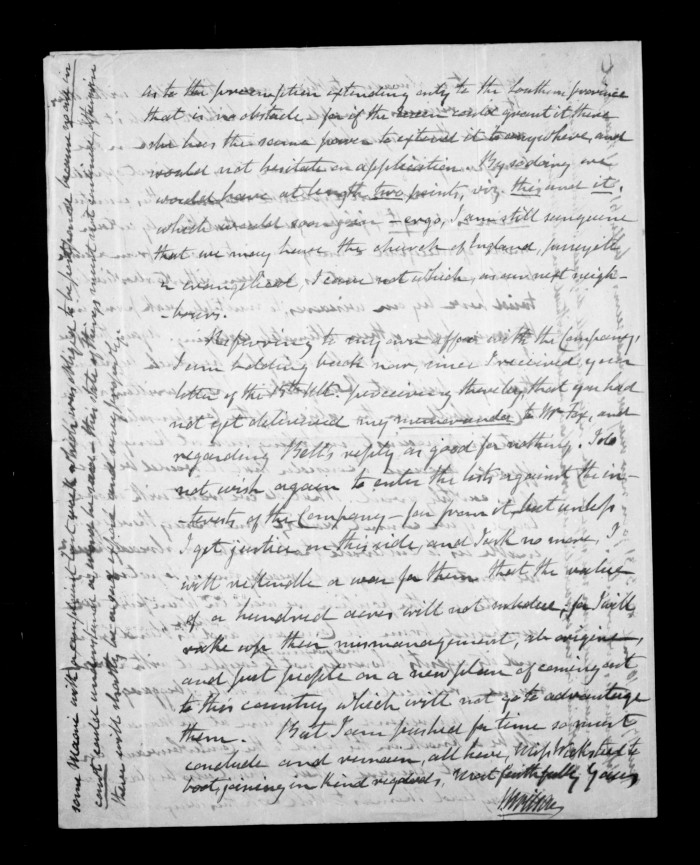 as to the preemption extending only to the Southern province
that is no obstacle for if the Queen could grant it there
she has the same power to extend it to anywhere, and
would not hesitate on application. By so doing we
would have at length two points, viz. this and it,
which would soon join – ergo, I am still sanguine
that we may have the church of England, puseyite
or evangelical, I care not which, as our next neigh-
-bours.
Referring to my own affair with the Company,
I am holding back now, since I received your
letter of the 15th Ult. perceiving thereby that you had
not yet delivered my memoranda to Mr Fox, and
regarding Bell's reply as good for nothing. I do
not wish again to enter the lists against the in-
-terests of the Company – far from it, but unless
I get justice on this side, and I ask no more, I
will rekindle a war for them that the value
of a hundred acres will not, for I will
rake up their mismanagement, ab origine,
and put people on a new plan of coming out
to this country which will not go to advantage
them. But I am pushed for time so must
conclude and remain, all here, Miss Wicksteed to
boot, joining in kind regards, Most faithfully Yours
some Maorie with a complaint in court, which was obliged to be postponed because again in
court could understand a word he said – this state of things must not continue, otherwise
there will shortly be an end of and